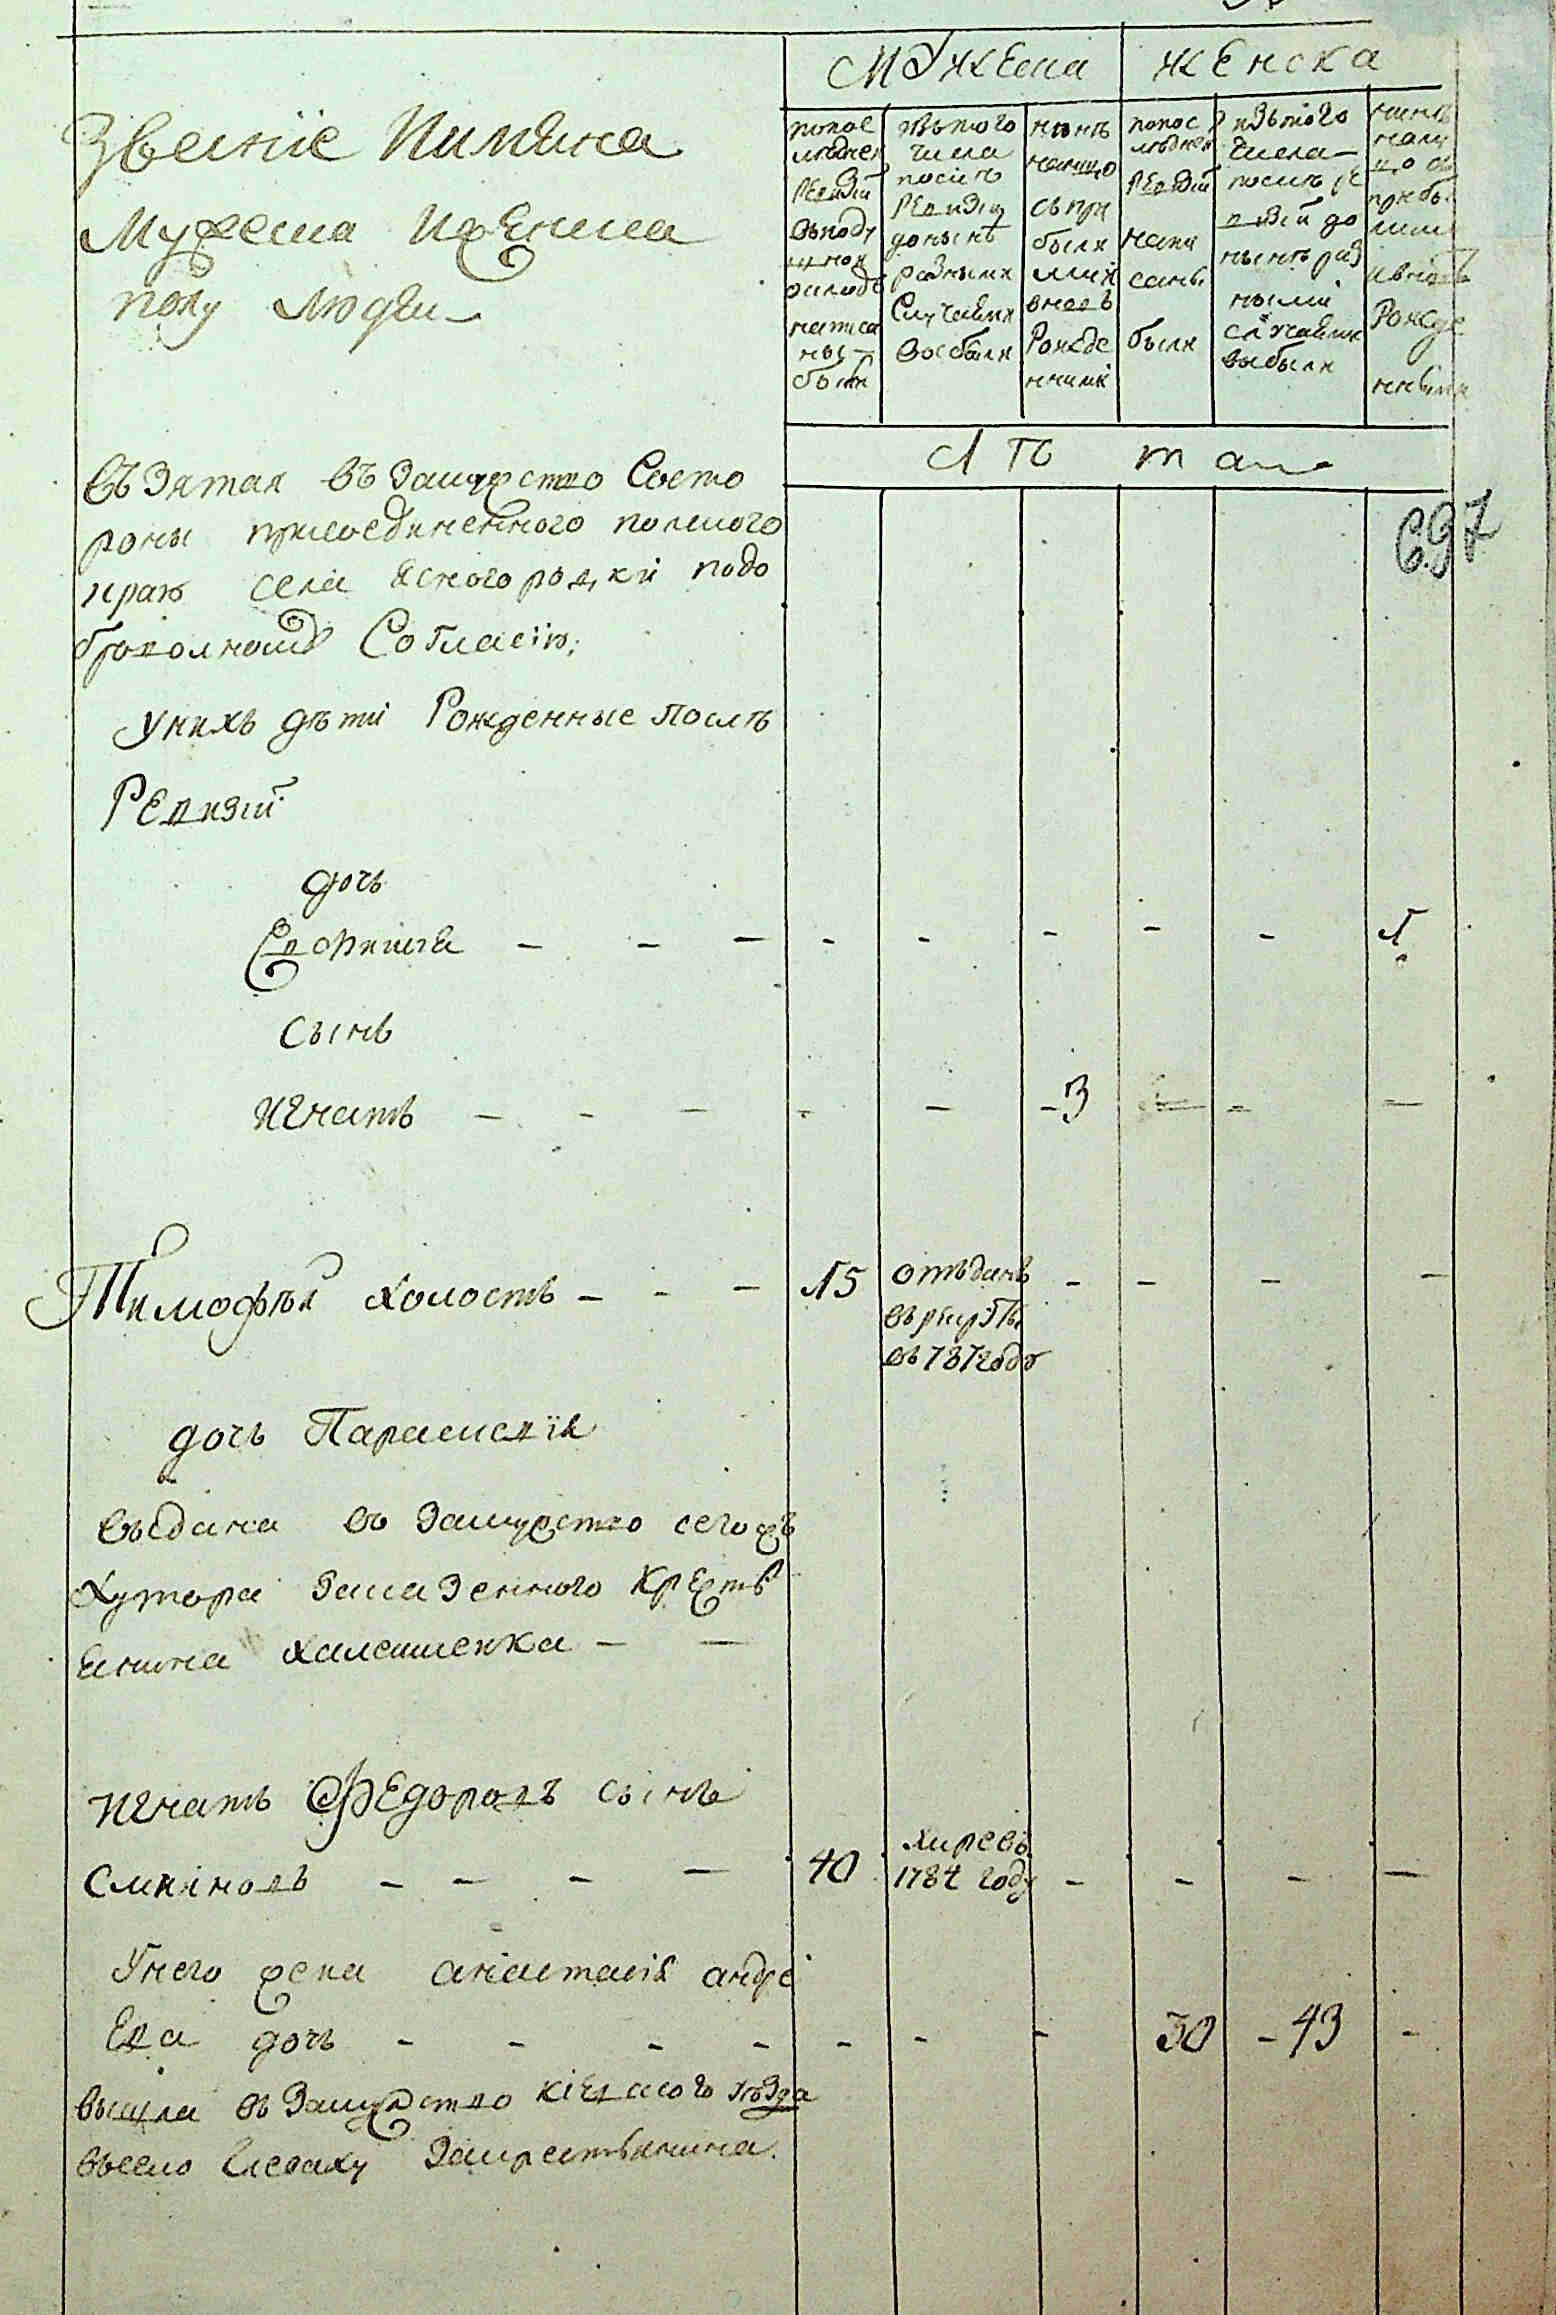 Мужеска
женска
Звестїе Имянна
Мужеска иженска
полу люди
попос
леднеи
ревизїи
вподу
шном
окладѣ
написа
ны
были
изътого
числа
послѣ
ревизїи
донынѣ
разными
Случаями
выбыли
нынѣ
налицо
съпри
были
ми и
вновь
Рожде
нними
попос
леднеи
ревизїи
напи
саны
были
изътого
числа
послѣ ре
визїи до
нынѣ раз
ными
случаями
выбыли
нынѣ
нали
цо съ
прибы
лими
ивновь
Рожде
нными
Лѣта
въЗятая въЗамужство Състо
роны присоединенного полского
края села Ясногородки подо
броволному Согласїю,
697
Унихъ дѣти Рожденные послѣ
Ревизїи
дочь
Евфимия - - - - - - - - 1
сынъ
игнатъ - - - - - - 3 - - -
Тимофѣй холостъ - - - 15 отъданъ - - - -
въ рекруты
въ 787 году
дочь Параскевїя
въдана во Замужство сегожъ
хутора Заказенного Кресть
янина
игнатъ Федоровъ сынъ
- - - - 40 умре въ
1784 году - - - -
Унего жена анастасїя андре
Ева дочь - - - - - - - 30 - 43 -
вышла въ Замужство кїевского уезда
въсело Закрестьянина